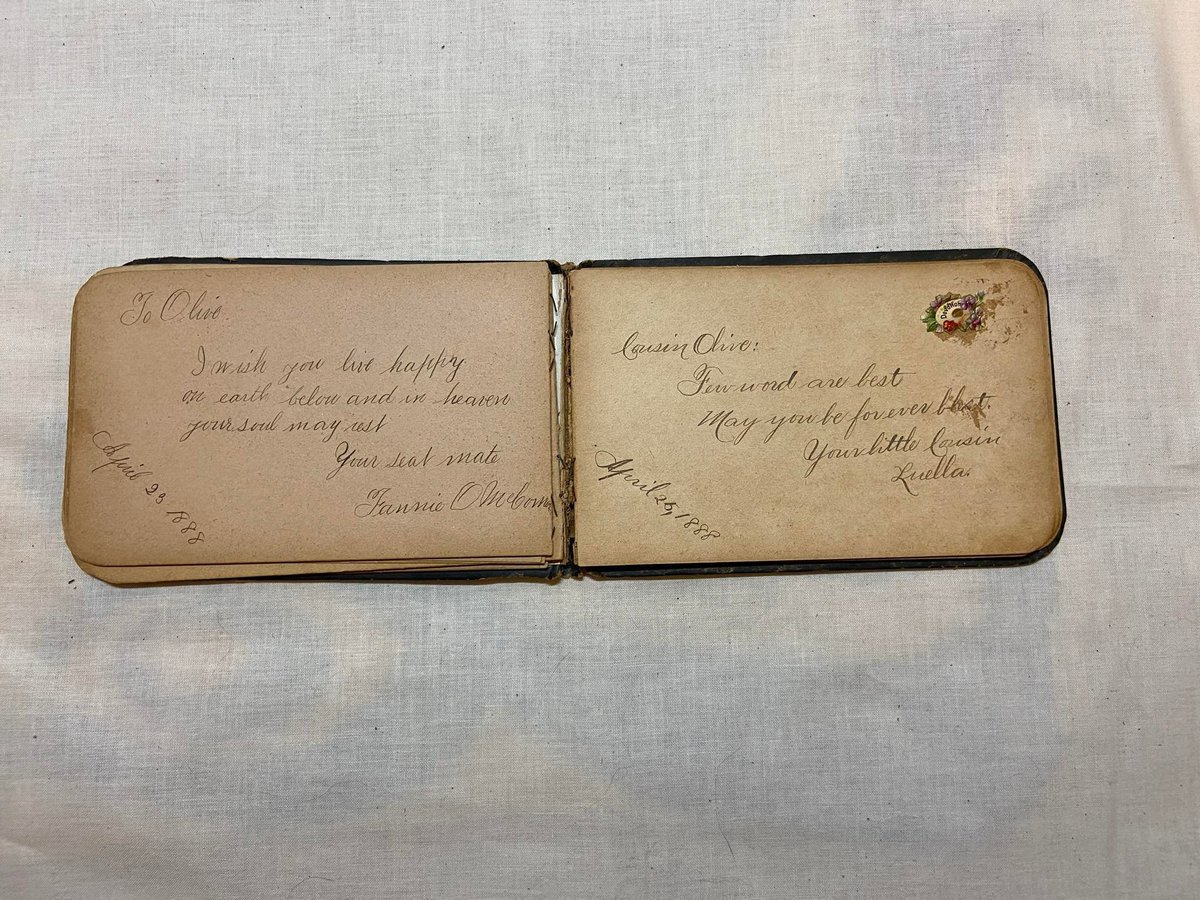 To Olive.
I wish you live happy
on earth below and in heaven
your soul may rest
Your seat mate
Fannie O
April 23 1888
Cousin Olive:
Few word are best
May you be forever blest.
Your little Cousin
Luella.
April 25, 1888